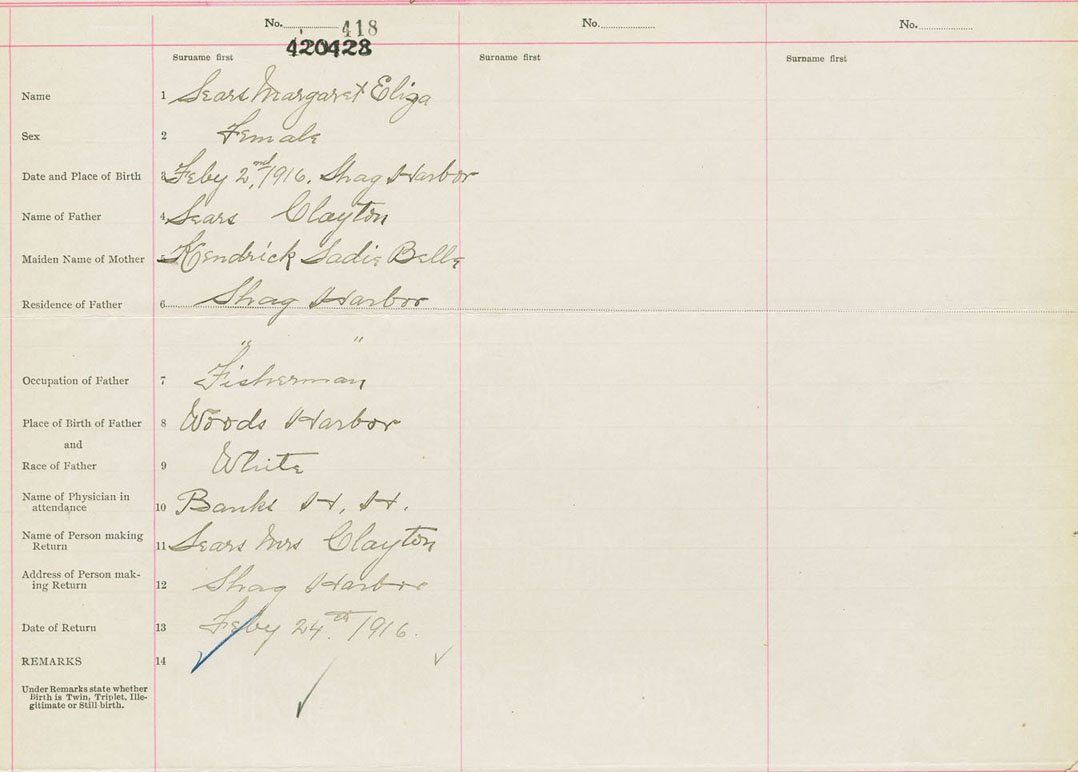 No. 418 No. No.
420428
Surname first Surname first Surname first
Name 1 Sears Margaret Eliza
Sex 2 Female
Date and Place of Birth 3 Feby 2nd, 1916. Shag Harbor
Name of Father 4 Sears Clayton
Maiden Name of Mother 5 Kendrick Sadie Belle
Residence of Father 6 Shag Harbor
" "
Occupation of Father 7 Fisherman
Place of Birth of Father 8 Woods Harbor
and
Race of Father 9 White
Name of Physician in
attendance 10 Banks H. H.
Name of Person making
Return 11 Sears Mrs Clayton
Address of Person mak-
ing Return 12 Shag Harbor
Date of Return 13 Feby 24th. 1916.
REMARKS 14
Under Remarks state whether
Birth is Twin, Triplet, Ille-
gitimate or Still-birth.